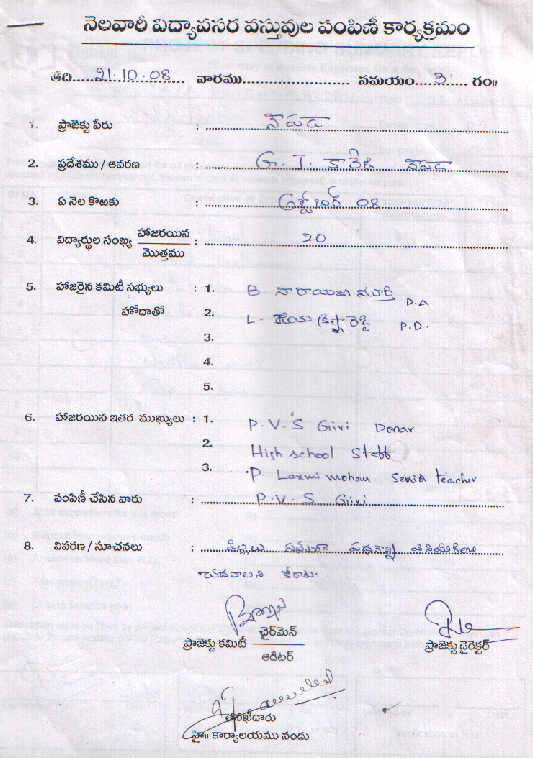 నెలవారీ విద్యావసర వస్తువుల పంపిణీ కార్యక్రమం
తేది 21.10.08 వారము సమయం 3 గం॥
1. ప్రాజెక్టు పేరు : నెవడా
2. ప్రదేశము / ఆవరణ : G. T.
3. ఏ నెల కొఱకు : అక్టోబర్ 08
4. విద్యార్థుల సంఖ్య హాజరయిన / మొత్తము : 20
5. హాజరైన కమిటీ సభ్యులు : 1. B నారాయణ మూర్తి P.A
హోదాతో 2. L. రెడ్డి P.D.
3.
4.
5.
6. హాజరయిన ఇతర ముఖ్యులు : 1. P.V.S Giri Donar
2. High school Staff
3. P Laxmi mohan Senior teacher
7. పంపిణీ చేసిన వారు : P.V.S Giri
8. వివరణ / సూచనలు : పిల్లలు
ప్రాజెక్టు కమిటీ ఛైర్మెన్ / ఆడిటర్
ప్రాజెక్టు డైరెక్టర్
కార్యాలయము నందు